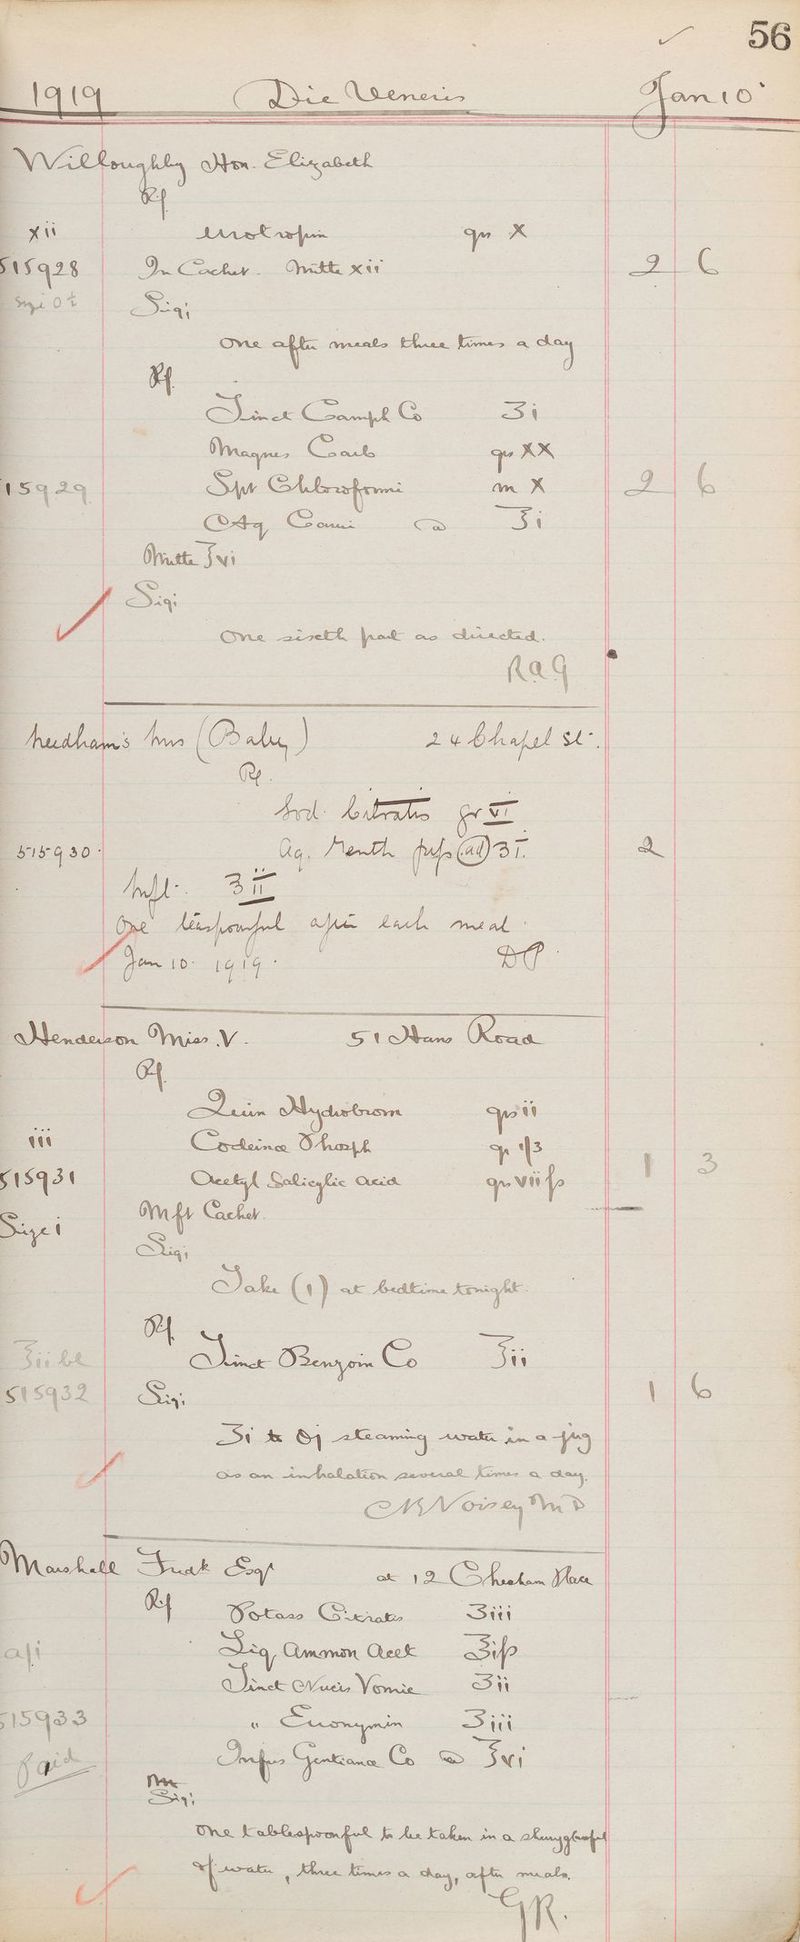 56
1919 Die Veneris Jan 10
Willoughby Hon. Elizabeth
Rf
xii Urotropin grs X
515928 In Cachet. Mitte xii 2 6
Sig;
One after meals three times a day
Rf
Tinct Camph Co ʒi
Magnes Carb grs XX
15929 Spt Chloroformi m X 2 6
Aq Carui ℥i
Mitte ℥vi
Sig;
One sixth part as directed.
R.A.G
Needham's Mrs (Baby) 24 Chapel St.
Rf.
Sod. Citratis gr vi
515930 Aq. Menth pip (ad) ʒi. 2
Mft. ʒii
One teaspoonful after each meal
Jan 10. 1919. DP
Henderson Miss. V. 51 Hans Road
Rf.
Quin Hydrobrom grs ii
iii Codeinae Phosph gr 1/3
515931 Acetyl Salicylic Acid grs viiſs 1 3
Mft Cachet.
Size i
Sig;
Take (1) at bedtime tonight.
Rf.
℥ii bl Tinct Benzoin Co ℥ii
515932 Sig; 1 6
ʒi to Oj steaming water in a jug
as an inhalation several times a day.
MD
Marshall Fredk Esqr at 12 Chesham Place
Rf Potass Citrates ʒiii
Liq Ammon Acet ℥iſs
Tinct Nucis Vomic ʒii
515933 " Euonymin ʒiii
Paid Infus Gentianae Co ℥vi
Sig;
One tablespoonful to be taken in a sherryglassful
of water, three times a day, after meals.
GR.